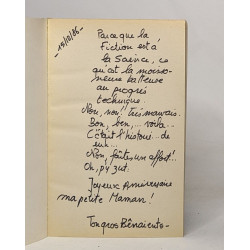 15/10/86
Parce que la
Fiction est à
la Science, ce
qu'est la moisson-
neuse batteuse
au progrès
technique.
Non, non! Très mauvais.
Bon, ben,... voilà...
C'était l'histoire... de
eux...
Non, faites un effort!..
Oh, py zut:
Joyeux Anniversaire
ma petite Maman!
Ton gros